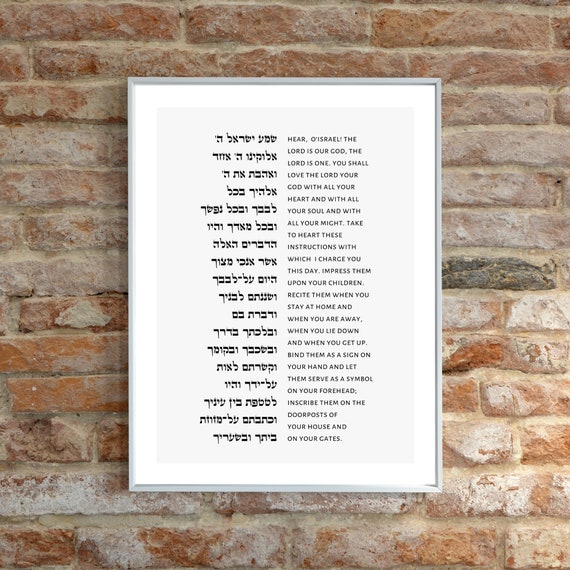 שמע ישראל ה'
אלוקינו ה' אחד
ואהבת את ה'
אלהיך בכל
לבבך ובכל נפשך
ובכל מאדך והיו
הדברים האלה
אשר אנכי מצוך
היום על־לבבך
ושננתם לבניך
ודברת בם
ובלכתך בדרך
ובשכבך ובקומך
וקשרתם לאות
על־ידך והיו
לטטפת בין עיניך
וכתבתם על־מזוזת
ביתך ובשעריך
HEAR, O'ISRAEL! THE
LORD IS OUR GOD, THE
LORD IS ONE. YOU SHALL
LOVE THE LORD YOUR
GOD WITH ALL YOUR
HEART AND WITH ALL
YOUR SOUL AND WITH
ALL YOUR MIGHT. TAKE
TO HEART THESE
INSTRUCTIONS WITH
WHICH I CHARGE YOU
THIS DAY. IMPRESS THEM
UPON YOUR CHILDREN.
RECITE THEM WHEN YOU
STAY AT HOME AND
WHEN YOU ARE AWAY,
WHEN YOU LIE DOWN
AND WHEN YOU GET UP.
BIND THEM AS A SIGN ON
YOUR HAND AND LET
THEM SERVE AS A SYMBOL
ON YOUR FOREHEAD;
INSCRIBE THEM ON THE
DOORPOSTS OF
YOUR HOUSE AND
ON YOUR GATES.